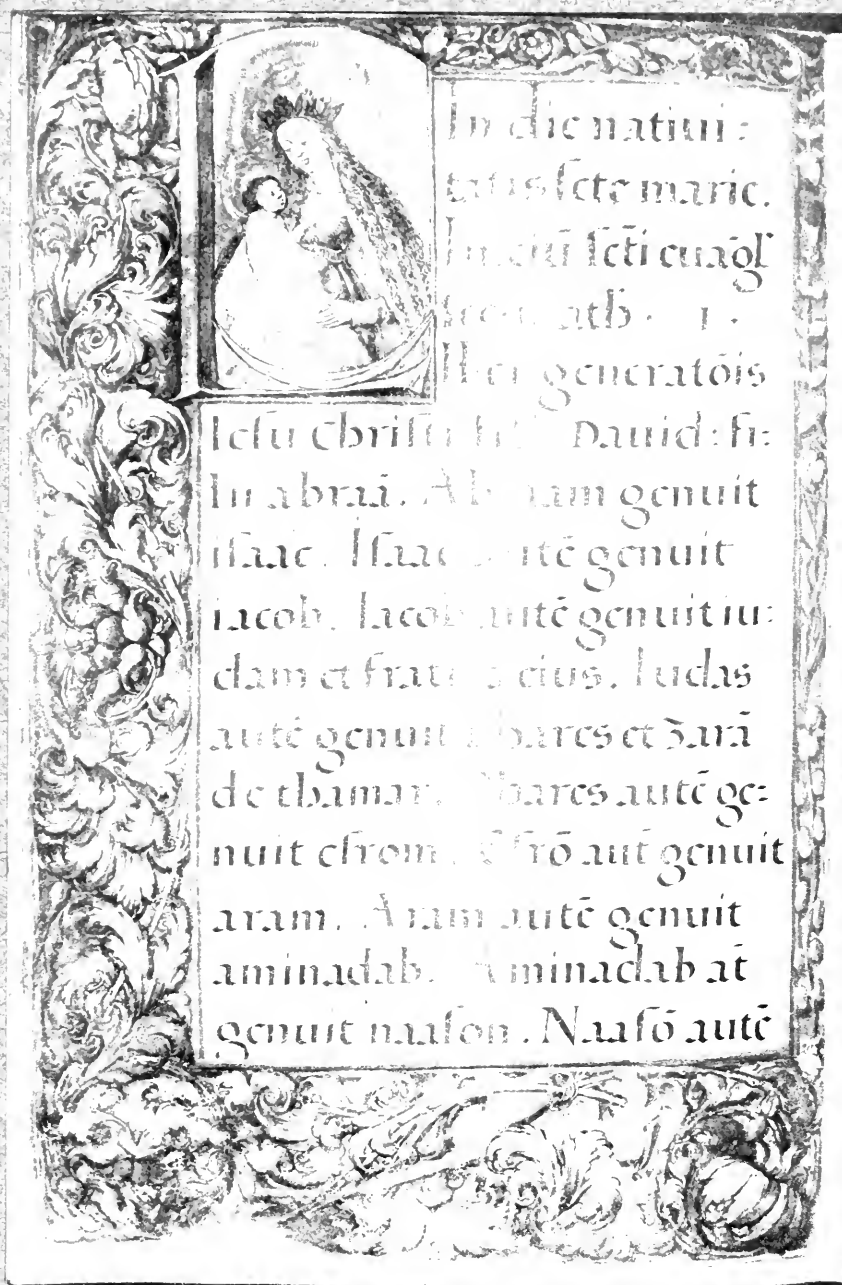 In die natiui:
tatis scte marie.
Iniciū sc̄ti euāgl̄
matħ · 1 ·
generatōis
Iesu Christi Dauid: fi:
lii abraā. Abraam genuit
isaac. Isaac autē genuit
iacob. Iacob autē genuit iu:
dam et fratres eius. Iudas
autē genuit phares et zarā
de thamar. Phares autē ge:
nuit esrom. Esrō aut̄ genuit
aram. Aram autē genuit
aminadab. Aminadab at̄
genuit naason. Naasō autē